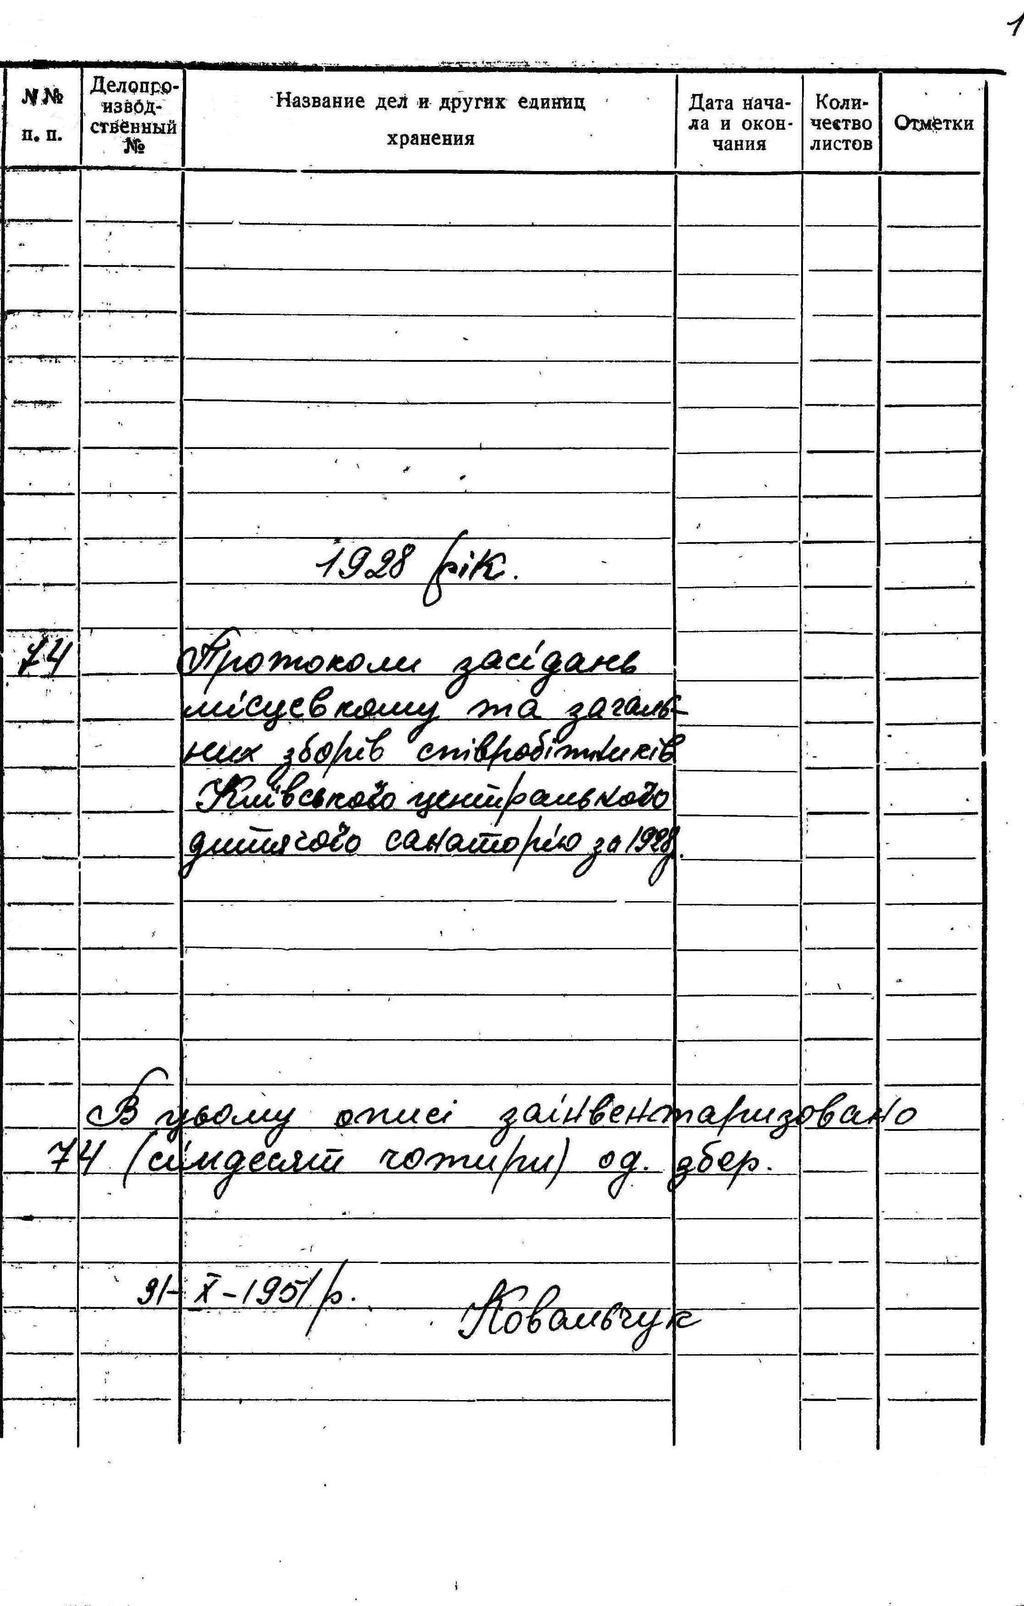 1
№№ п. п.
Делопро-
извод-
ственный
№
Название дел и других единиц
хранения
Дата нача-
ла и окон-
чания
Коли-
чество
листов
Отметки
1928 рік.
74 Протоколи засідань
місцевкому та загаль-
них зборів співробітників
Київського центрального
дитячого санаторію за 1928р.
В цьому описі заінвентаризовано
74 (сімдесят чотири) од. збер.
31-X-1951 р.
Ковальчук